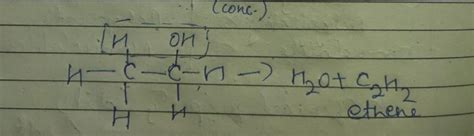 (conc.)
H OH
H—C—C—H → H₂O + C₂H₂
H H ethene